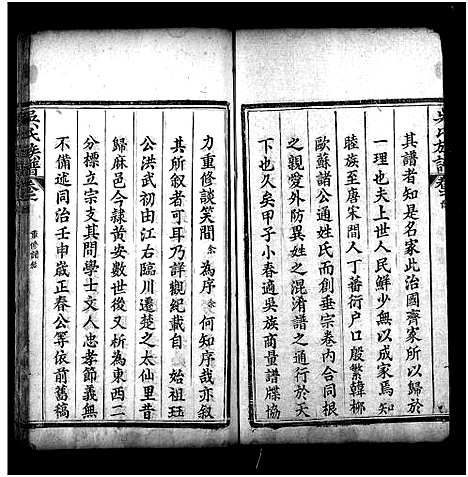 其譜者知是名家此治國齊家所以歸於
一理也夫上世人民鮮少無以成家焉知
睦族至唐宋間人丁蕃衍户口殷繁韓柳
歐蘇諸公通姓氏而創垂宗卷内合同根
之親愛外防異姓之混淆譜之通行於天
下也久矣甲子小春適吳族商量譜牒恊
力重修談笑間余為序余何知序哉亦叙
其所叙者可耳乃詳觀紀載自始祖珏
公洪武初由江右臨川遷楚之太仙里昔
歸麻邑今隸黄安數世後又析為東西二
分標立宗支其問學士文人忠孝節義無
不備述同治壬申歲正春公等依前舊稿
吳氏族譜
卷之首
重修譜叙